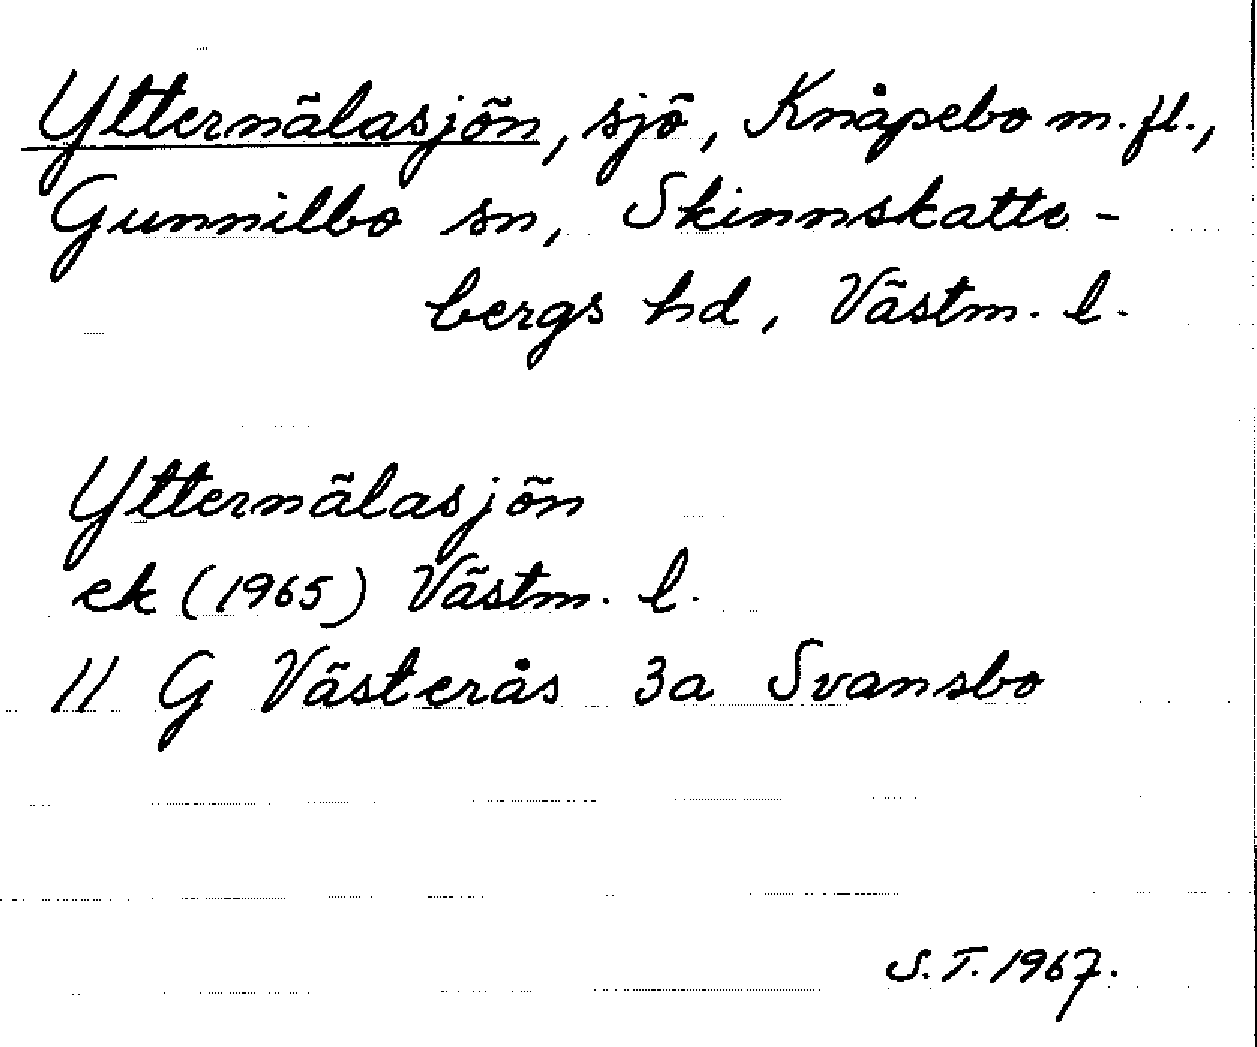 Ytternälasjön, sjö, Knåpebo m.fl.,
Gunnilbo sn, Skinnskatte-
bergs hd, Västm. l.
Ytternälasjön
ek (1965) Västm. l.
11 G Västerås 3a Svansbo
S.T. 1967.